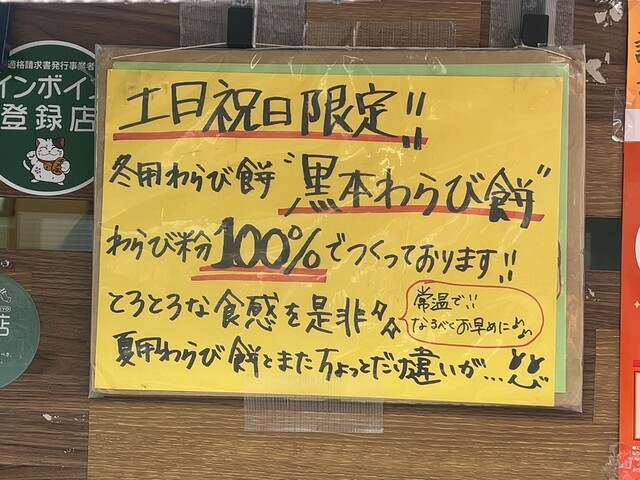 適格請求書発行事業者
インボイ
登録店
土日祝日限定!!
冬用わらび餅"黒本わらび餅"
わらび粉100%でつくっております!!
とろとろな食感を是非々々
常温で!!
なるべくお早めに
夏用わらび餅とまたちょっとだけ違いが…
店